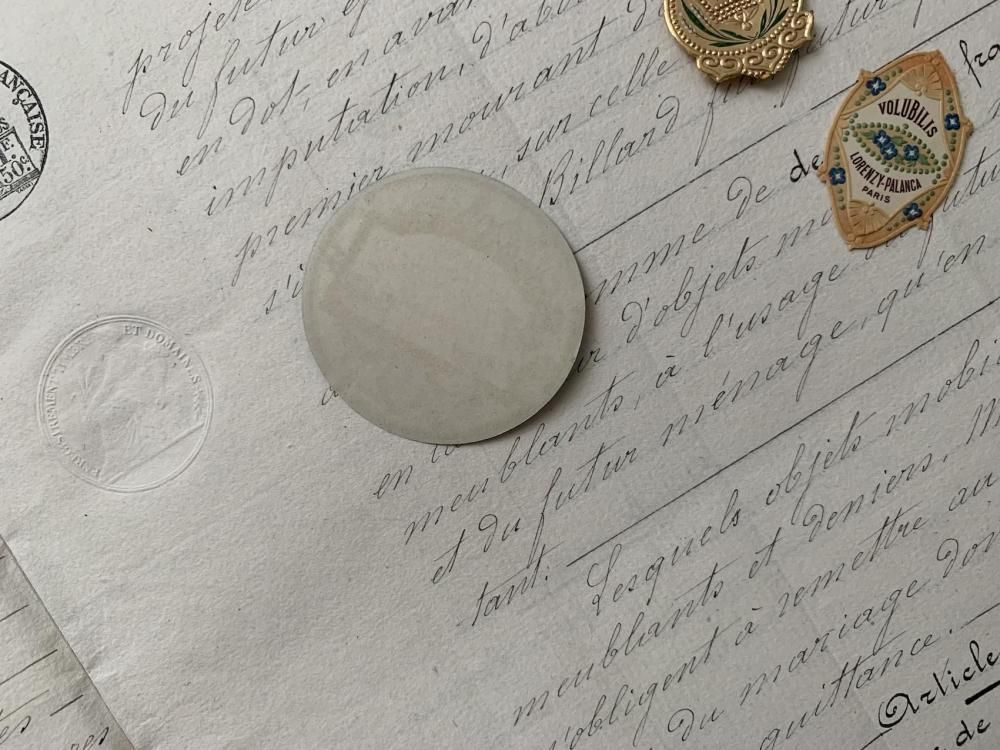 projet
du futur ép
en dot, en avan
imputation, d'abo
premier mourant d
s'i sur celle
Billard fu futur
de fra
mme de
ur d'objets mo
en
meublants, à l'usage futur
et du futur ménage, qu'en
tant.
Lesquels objets mobi
meublants et deniers,
s'obligent à remettre au
du mariage don
quittance.
Article
de
ANÇAISE
50c
ENREGISTREMENT TIMBRE ET DOMAINES
VOLUBILIS
LORENZY-PALANCA
PARIS